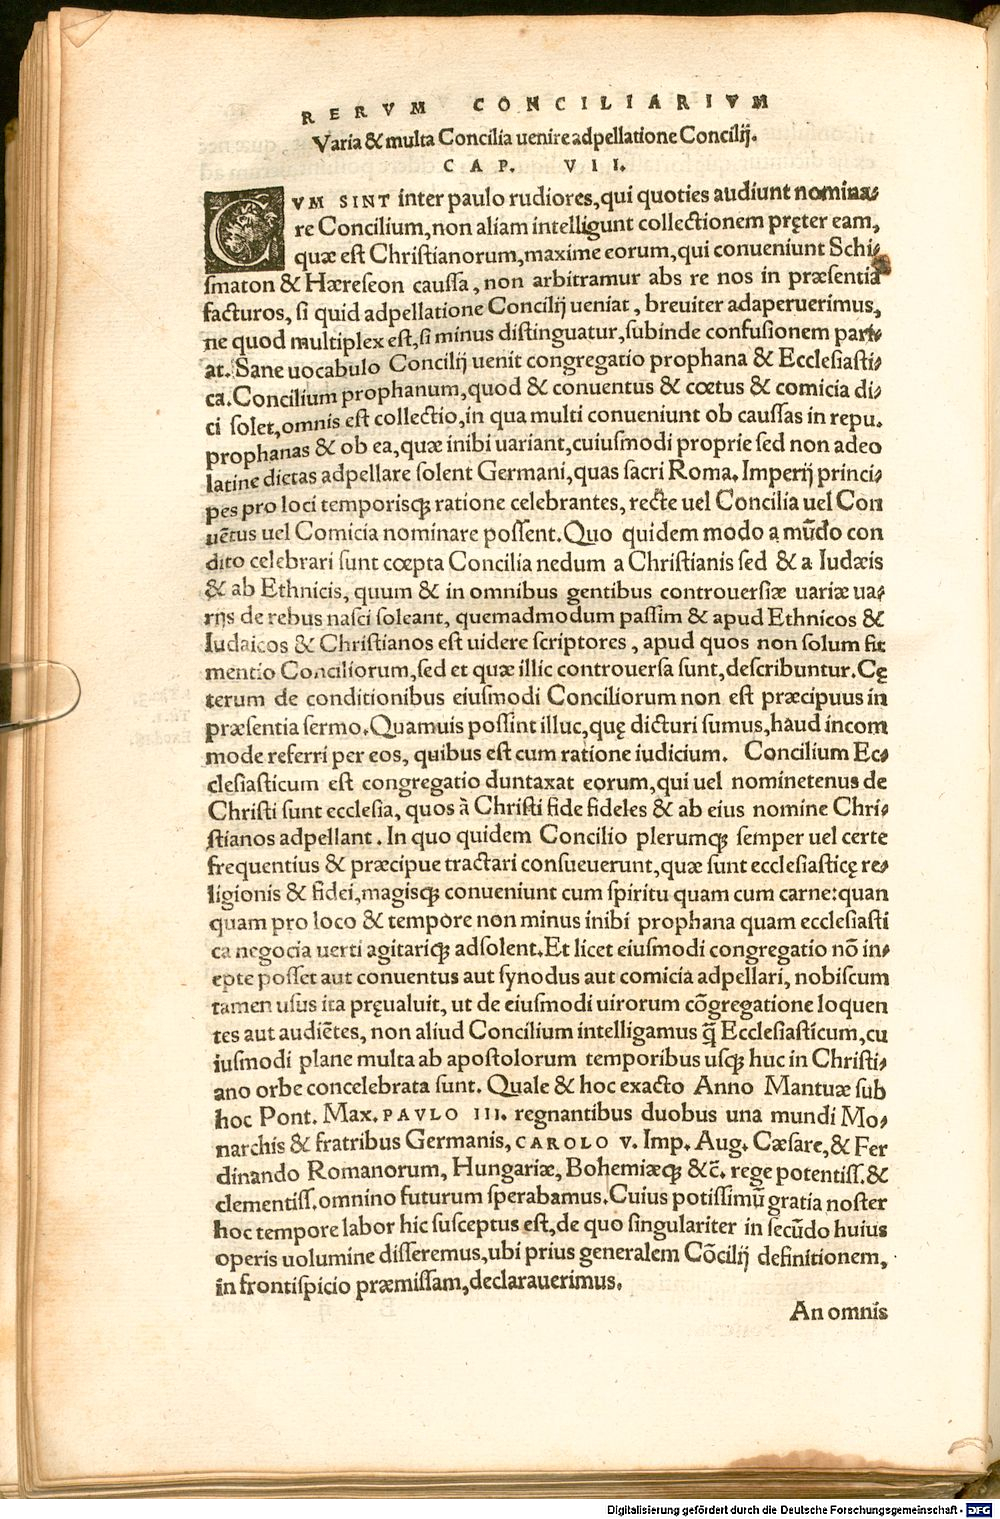 RERVM CONCILIARIVM
Varia & multa Concilia uenire adpellatione Concilij.
CAP. VII.
CVM SINT inter paulo rudiores, qui quoties audiunt nomina⸗
re Concilium, non aliam intelligunt collectionem pręter eam,
quæ est Christianorum, maxime eorum, qui conueniunt Schi⸗
smaton & Hæreseon caussa, non arbitramur abs re nos in præsentia
facturos, si quid adpellatione Concilij ueniat, breuiter adaperuerimus,
ne quod multiplex est, si minus distinguatur, subinde confusionem pari⸗
at. Sane uocabulo Concilij uenit congregatio prophana & Ecclesiasti⸗
ca. Concilium prophanum, quod & conuentus & cœtus & comicia di⸗
ci solet, omnis est collectio, in qua multi conueniunt ob caussas in repu.
prophanas & ob ea, quæ inibi uariant, cuiusmodi proprie sed non adeo
latine dictas adpellare solent Germani, quas sacri Roma. Imperij princi⸗
pes pro loci temporisq; ratione celebrantes, recte uel Concilia uel Con
uētus uel Comicia nominare possent. Quo quidem modo a mūdo con
dito celebrari sunt cœpta Concilia nedum a Christianis sed & a Iudæis
& ab Ethnicis, quum & in omnibus gentibus controuersiæ uariæ ua⸗
rijs de rebus nasci soleant, quemadmodum passim & apud Ethnicos &
Iudaicos & Christianos est uidere scriptores, apud quos non solum fit
mentio Conciliorum, sed et quæ illic controuersa sunt, describuntur. Cę
terum de conditionibus eiusmodi Conciliorum non est præcipuus in
præsentia sermo. Quamuis possint illuc, quę dicturi sumus, haud incom
mode referri per eos, quibus est cum ratione iudicium. Concilium Ec⸗
clesiasticum est congregatio duntaxat eorum, qui uel nominetenus de
Christi sunt ecclesia, quos à Christi fide fideles & ab eius nomine Chri⸗
stianos adpellant. In quo quidem Concilio plerumq; semper uel certe
frequentius & præcipue tractari consueuerunt, quæ sunt ecclesiasticę re⸗
ligionis & fidei, magisq; conueniunt cum spiritu quam cum carne: quan
quam pro loco & tempore non minus inibi prophana quam ecclesiasti
ca negocia uerti agitariq; adsolent. Et licet eiusmodi congregatio nō in⸗
epte posset aut conuentus aut synodus aut comicia adpellari, nobiscum
tamen usus ita pręualuit, ut de eiusmodi uirorum cōgregatione loquen
tes aut audiētes, non aliud Concilium intelligamus q̄ Ecclesiasticum, cu
iusmodi plane multa ab apostolorum temporibus usq; huc in Christi⸗
ano orbe concelebrata sunt. Quale & hoc exacto Anno Mantuæ sub
hoc Pont. Max. PAVLO III. regnantibus duobus una mundi Mo⸗
narchis & fratribus Germanis, CAROLO V. Imp. Aug. Cæsare, & Fer
dinando Romanorum, Hungariæ, Bohemiæq; &c̄. rege potentiss. &
clementiss. omnino futurum sperabamus. Cuius potissimū gratia noster
hoc tempore labor hic susceptus est, de quo singulariter in secūdo huius
operis uolumine disseremus, ubi prius generalem Cōcilij definitionem,
in frontispicio præmissam, declarauerimus.
An omnis
Digitalisierung gefördert durch die Deutsche Forschungsgemeinschaft - DFG